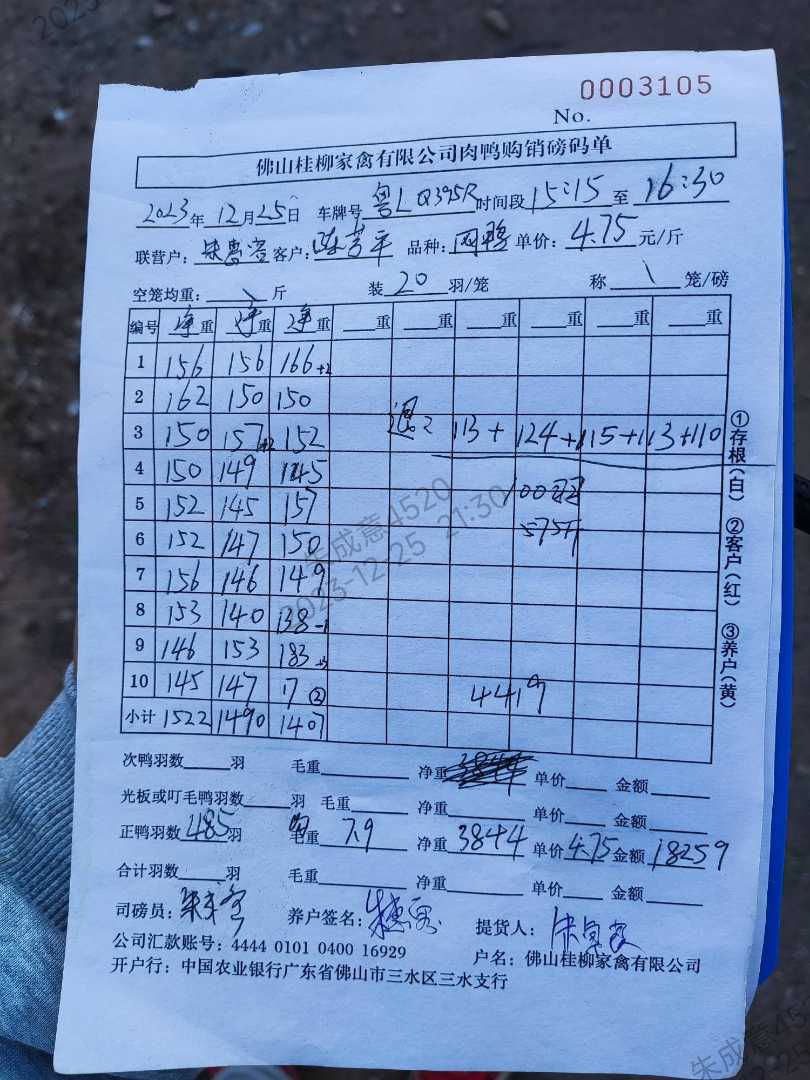 0003105
No.
佛山桂柳家禽有限公司肉鸭购销磅码单
2023年12月25日 车牌号 鲁LQ395R 时间段 15:15 至 16:30
联营户: 客户: 陈芳平 品种: 肉鸭 单价: 4.75 元/斤
空笼均重: \ 斤 装 20 羽/笼 称 \ 笼/磅
编号 净重 净重 净重 重 重 重 重 重 重
1 156 156 166 +2
2 162 150 150
3 150 157 +2 152 退2 113+ 124+ 115+ 113+110
4 150 149 145 100羽
5 152 145 157 575斤
6 152 147 150
7 156 146 149
8 153 140 138 -1
9 146 153 183 +3
10 145 147 17 ② 4419
小计 1522 1490 1407
次鸭羽数 羽 毛重 净重 3844 单价 金额
光板或叮毛鸭羽数 羽 毛重 净重 单价 金额
正鸭羽数 485 羽 均重 7.9 净重 3844 单价 4.75 金额 18259
合计羽数 羽 毛重 净重 单价 金额
司磅员: 养户签名: 提货人:
公司汇款账号: 4444 0101 0400 16929 户名: 佛山桂柳家禽有限公司
开户行: 中国农业银行广东省佛山市三水区三水支行
①存根(白) ②客户(红) ③养户(黄)
朱成意4520
2023-12-25 21:30